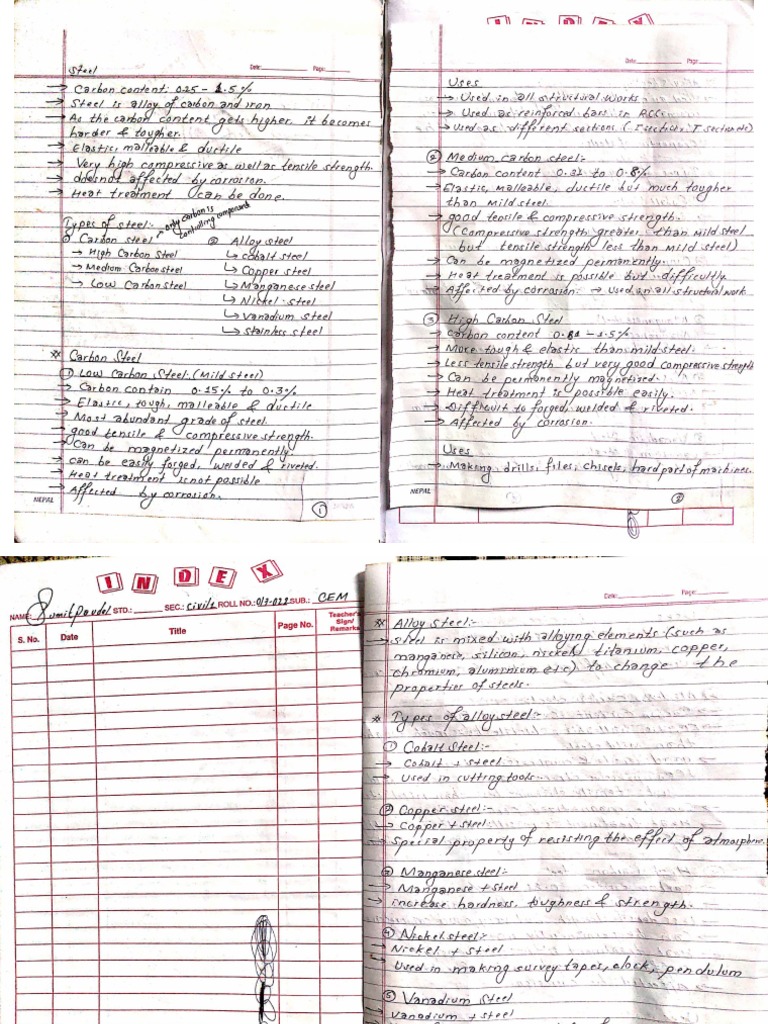 Date: Page:
Steel
→ Carbon content: 0.25 - 1.5%
→ Steel is alloy of carbon and iron
→ As the carbon content gets higher. it becomes
harder & tougher.
→ Elastic, malleable & ductile
→ Very high compressive as well as tensile strength.
→ doesnot affected by corrosion.
→ Heat treatment can be done.
Types of steel:-
→ only carbon is
controlling components
① Carbon steel
→ High Carbon Steel
→ Medium Carbon steel
→ Low Carbon steel
② Alloy steel
↳ cobalt steel
↳ Copper steel
↳ Manganese steel
↳ Nickel steel
↳ Vanadium steel
↳ Stainless steel
* Carbon Steel
① Low Carbon Steel:(Mild steel)
→ Carbon contain 0.15% to 0.3%
→ Elastic, tough, malleable & ductile
→ Most abundant grade of steel.
→ good tensile & compressive strength.
→ Can be magnetized permanently.
→ can be easily forged, welded & riveted.
→ Heat treatment is not possible
→ Affected by corrosion.
NEPAL
①
INDEX
Date: Page:
Uses
→ Used in all structural works.
→ Used as reinforced bars in RCC.
→ Used as different sections (I section, T section etc)
② Medium carbon steel:-
→ Carbon content 0.31 to 0.8%
→ Elastic, Malleable, ductile but much tougher
than Mild steel.
→ good tensile & compressive strength.
(Compressive strength greater than Mild steel
but tensile strength less than Mild steel)
→ Can be magnetized permanently.
→ Heat treatment is possible but difficultly
→ Affected by corrosion. → Used in all structural work
③ High Carbon Steel
→ carbon content 0.81 - 1.5%
→ More tough & elastic than mild steel.
→ Less tensile strength but very good compressive strength
→ Can be permanently magnetised.
→ Heat treatment is possible easily.
→ Difficult to forged, welded & riveted.
→ Affected by corrosion.
Uses
→ Making drills, files, chisels, hard part of machines.
NEPAL
②
INDEX
NAME: Sumit Paudel STD.: SEC.: Civil 1 ROLL NO.: 013-022 SUB.: CEM
S. No. Date Title Page No. Teacher's
Sign/
Remarks
Date: Page:
** Alloy steel:-
→ Steel is mixed with alloying elements (such as
manganese, silicon, nickel, titanium, copper,
chromium, aluminium etc) to change the
properties of steels.
* Types of alloy steel:-
① Cobalt Steel:-
→ Cobalt + steel
→ Used in cutting tools.
② Copper steel:-
→ Copper + steel
→ Special property of resisting the effect of atmosphere.
③ Manganese steel:-
→ Manganese + steel
→ increase hardness, toughness & strength.
④ Nickel steel:-
→ Nickel + steel
→ Used in making survey tapes, clock, pendulum
⑤ Vanadium Steel
→ Vanadium + steel